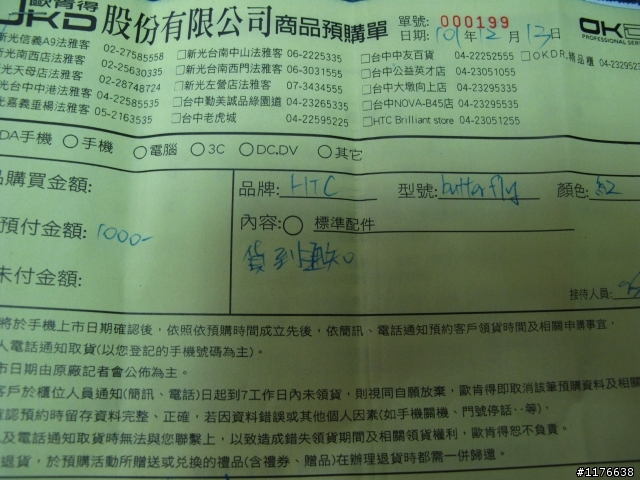 歐肯得
OKD 股份有限公司 商品預購單 單號: 000199
日期: 101年12月13日
OKD
PROFESSIONAL SER
新光信義A9法雅客 02-27585558 □新光台南中山法雅客 06-2225335 □台中中友百貨 04-22252555 □OKDR.精品櫃 04-232952
新光南西店法雅客 02-25630335 □新光台南西門法雅客 06-3031555 □台中公益英才店 04-23051055
光天母店法雅客 02-28748724 □新光左營店法雅客 07-3434555 □台中大墩向上店 04-23295335
光台中中港法雅客 04-22585535 □台中勤美誠品綠園道 04-23265335 □台中NOVA-B45店 04-23295535
光嘉義垂楊法雅客 05-2163535 □台中老虎城 04-22595225 □HTC Brilliant store 04-23051255
DA手機 ○手機 ○電腦 ○3C ○DC.DV ○其它
品購買金額:
品牌: HTC 型號: butterfly 顏色: 紅
預付金額: 1000-
內容:○ 標準配件
貨到通知
未付金額:
接待人員:
將於手機上市日期確認後，依照依預購時間成立先後，依簡訊、電話通知預約客戶領貨時間及相關申購事宜，
人電話通知取貨(以您登記的手機號碼為主)。
市日期由原廠記者會公佈為主。
客戶於櫃位人員通知(簡訊、電話)日起到7工作日內未領貨，則視同自願放棄，歐肯得即取消該筆預購資料及相關
確認預約時留存資料完整、正確，若因資料錯誤或其他個人因素(如手機關機、門號停話‥等)，
以及電話通知取貨時無法與您聯繫上，以致造成錯失領貨期間及相關領貨權利，歐肯得恕不負責。
退貨，於預購活動所贈送或兌換的禮品(含禮券、贈品)在辦理退貨時都需一併歸還。
#1176638